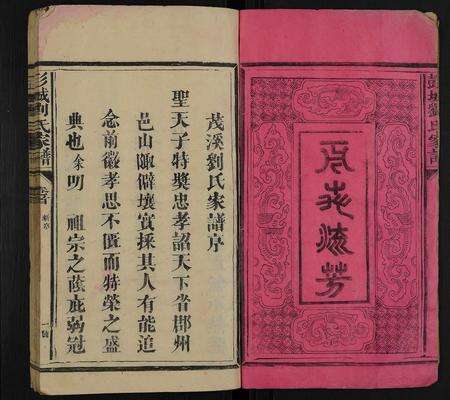 彭城劉氏家譜
百世流芳
茂溪劉氏家譜序
聖天子特獎忠孝詔天下省郡州
邑山陬僻壤實採其人有能追
念前徽孝思不匱而特榮之盛
典也余明 祖宗之蔭庇弱冠
彭城刘氏家譜
卷首